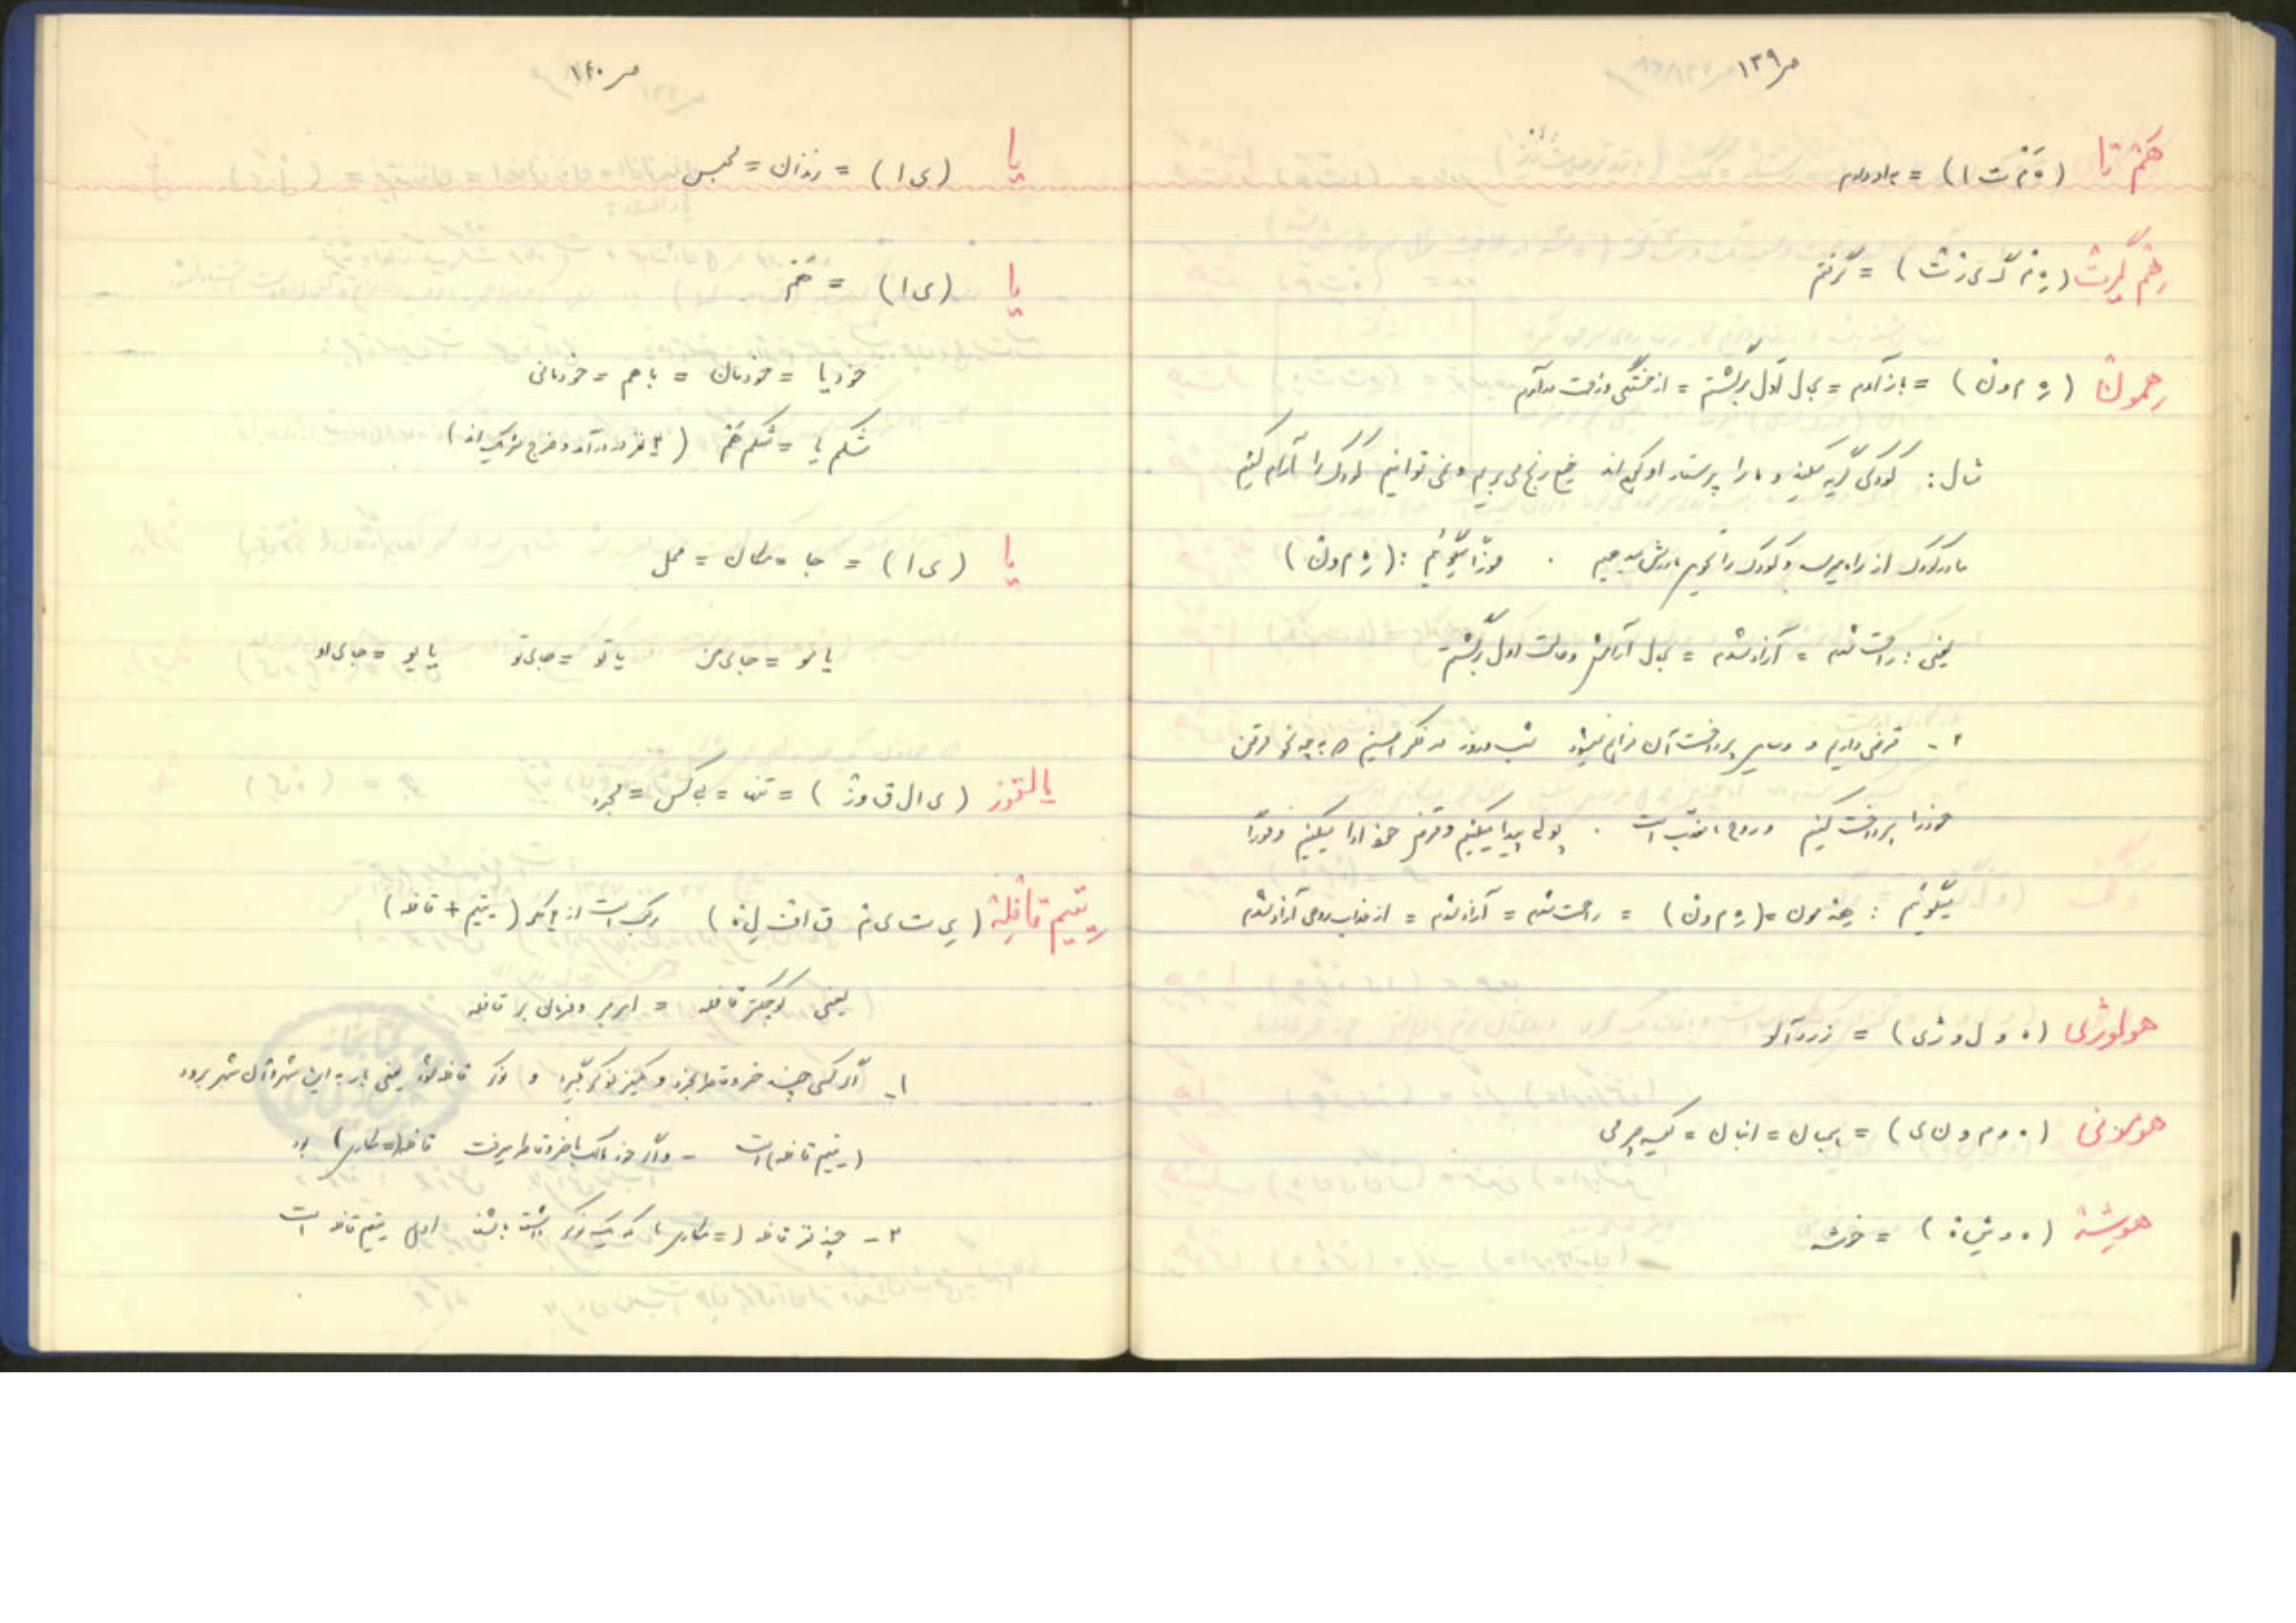 ص ۱۳۹
هَمْ تا (ه َ م ْ ت ا) =
هِمْ گِرِتْ (هِ مْ گ ی ر ت) = گرفتم
هِمونْ (هِ م و نْ) = باز آمدم = بحال اول برگشتم = از خستگی و زحمت درآمدم
مثال: کودکی گریه میکند و ما را پرستار او کرده‌اند خیلی رنج می بریم و نمی توانیم کودک را آرام کنیم
مادر کودک از راه میرسد و کودک را تحویل مادرش میدهیم . فوراً میگوئیم: (هِ م و ن)
یعنی: راحت شدم = آزاد شدم = بحال آرامش و حالت اول برگشتم
۲ - قرضی داریم و وسایل پرداخت آن فراهم نمیشود شب و روز در فکر هستیم که به چه نحو قرض
خود را پرداخت کنیم و روح در عذاب است . پولی پیدا میکنیم و قرض خود ادا میکنیم و فوراً
میگوئیم: هِمون = (هِ م و ن) = راحت شدم = آزاد شدم = از عذاب روحی آزاد شدم
هولوژی (ه و ل و ژ ی) = زردآلو
هومونی (ه و م و ن ی) = همیان = انبان = کیسه چرمی
هویشة (ه و ی ش ة) = خوشه
ص ۱۴۰
یا (ی ا) = زندان = محبس
یا (ی ا) = هَم
خودیا = خودمان = باهم = خودمانی
شکم یا = شکم هَم (۲ نفر در درآمد و خرج شریک اند)
یا (ی ا) = جا = مکان = محل
یا مو = جای من یا تو = جای تو یا یو = جای او
یالقوز (ی ا ل ق و ز) = تنها = بی کس = مجرد
یتیم قافِلِه (ی ت ی م ق ا ف ل ه) مرکب است از ۲ کلمه (یتیم + قافله)
یعنی کوچکتر قافله = امربر و فرمانبر قافله
۱ - اگر کسی چند خر و قاطر بخرد و یکنفر نوکر بگیرد و نوکر قافله شود یعنی بار به این شهر و آن شهر برود
(یتیم قافله) است - و اگر خود مالک با خر و قاطر میرفت قافله (= مکاری) بود
۲ - چند نفر قافله (= مکاری) که یک نوکر داشته باشند او یتیم قافله است